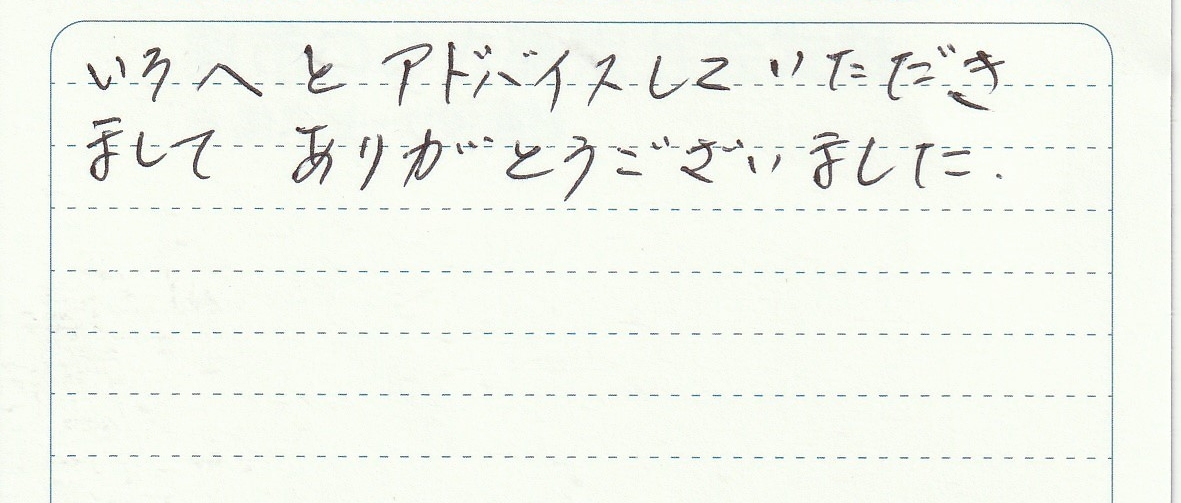 いろへと アドバイスしていただき
まして ありがとうございました.